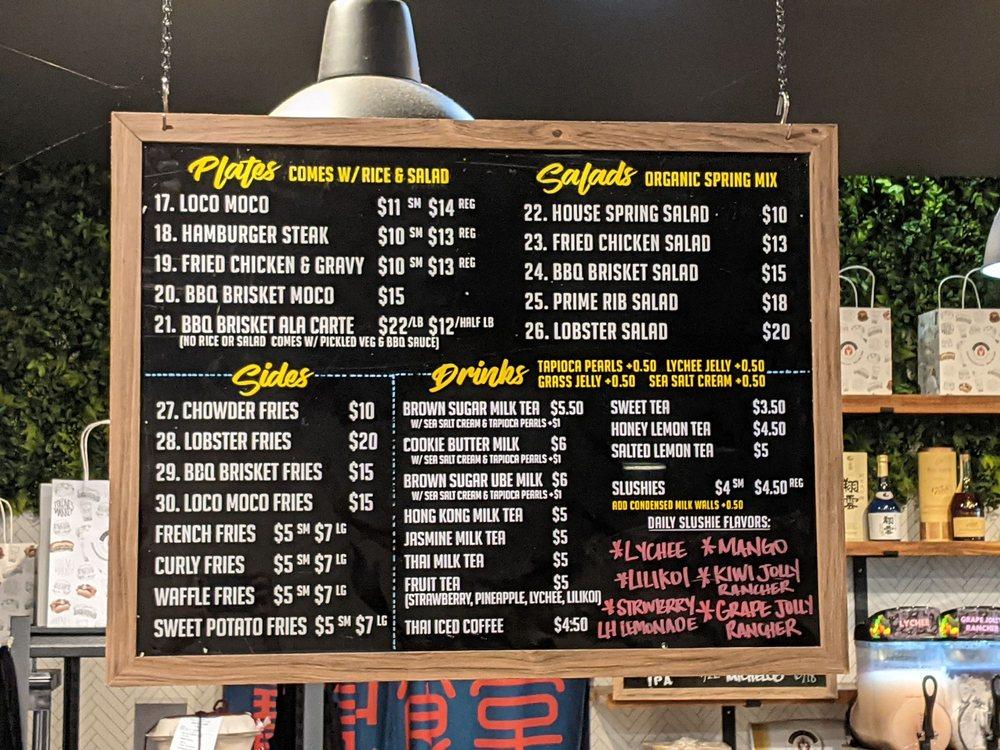 Plates COMES W/ RICE & SALAD
17. LOCO MOCO $11 SM $14 REG
18. HAMBURGER STEAK $10 SM $13 REG
19. FRIED CHICKEN & GRAVY $10 SM $13 REG
20. BBQ BRISKET MOCO $15
21. BBQ BRISKET ALA CARTE $22/LB $12/HALF LB
(NO RICE OR SALAD COMES W/ PICKLED VEG & BBQ SAUCE)
Salads ORGANIC SPRING MIX
22. HOUSE SPRING SALAD $10
23. FRIED CHICKEN SALAD $13
24. BBQ BRISKET SALAD $15
25. PRIME RIB SALAD $18
26. LOBSTER SALAD $20
Sides
27. CHOWDER FRIES $10
28. LOBSTER FRIES $20
29. BBQ BRISKET FRIES $15
30. LOCO MOCO FRIES $15
FRENCH FRIES $5 SM $7 LG
CURLY FRIES $5 SM $7 LG
WAFFLE FRIES $5 SM $7 LG
SWEET POTATO FRIES $5 SM $7 LG
Drinks
TAPIOCA PEARLS +0.50 LYCHEE JELLY +0.50
GRASS JELLY +0.50 SEA SALT CREAM +0.50
BROWN SUGAR MILK TEA $5.50
W/ SEA SALT CREAM & TAPIOCA PEARLS +$1
COOKIE BUTTER MILK $6
W/ SEA SALT CREAM & TAPIOCA PEARLS +$1
BROWN SUGAR UBE MILK $6
W/ SEA SALT CREAM & TAPIOCA PEARLS +$1
HONG KONG MILK TEA $5
JASMINE MILK TEA $5
THAI MILK TEA $5
FRUIT TEA $5
(STRAWBERRY, PINEAPPLE, LYCHEE, LILIKOI)
THAI ICED COFFEE $4:50
SWEET TEA $3.50
HONEY LEMON TEA $4.50
SALTED LEMON TEA $5
SLUSHIES $4 SM $4.50 REG
ADD CONDENSED MILK WALLS +0.50
DAILY SLUSHIE FLAVORS:
*LYCHEE *MANGO
*LILIKOI *KIWI JOLLY
RANCHER
*STRWERRY *GRAPE JOLLY
LH LEMONADE RANCHER
LYCHEE
GRAPE JOLLY
RANCHER
IPA